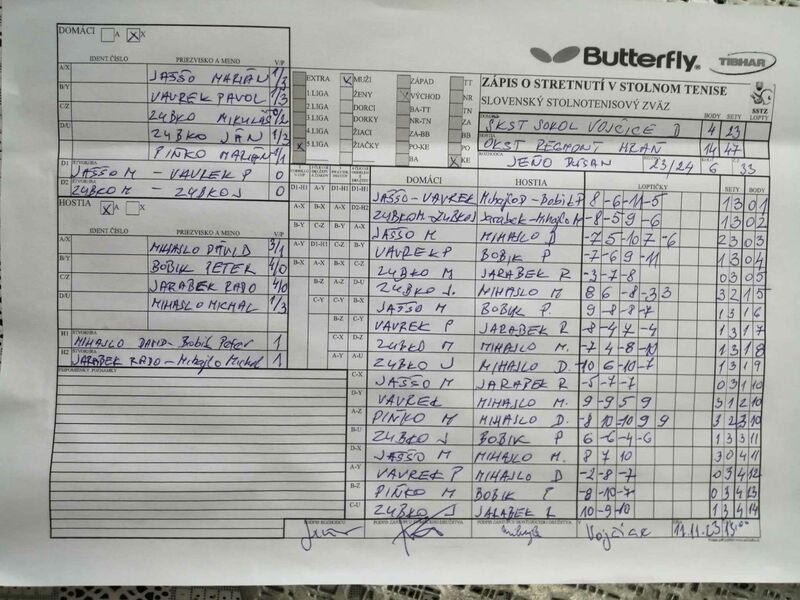 DOMÁCI A X X
IDENT.ČÍSLO PRIEZVISKO A MENO V/P
A/X JAŠŠO MARIÁN 1/3
B/Y VAVREK PAVOL 1/3
C/Z ZUBKO MIKULÁŠ 0/2
D/U ZUBKO JÁN 1/3
PIŇKO MARIÁN 1/1
D1 ŠTVORHRA JAŠŠO M - VAVREK P 0
D2 ŠTVORHRA ZUBKO M - ZUBKO J 0
HOSTIA X A X
IDENT.ČÍSLO PRIEZVISKO A MENO V/P
A/X MIHAJLO DÁVID 3/1
B/Y BOBIK PETER 4/0
C/Z JARABEK RADO 4/0
D/U MIHAJLO MICHAL 1/3
H1 ŠTVORHRA MIHAJLO DAVID - Bobik Peter 1
H2 ŠTVORHRA JARABEK RADO - Mihajlo Michal 1
PRIPOMIENKY, POZNÁMKY
Butterfly TIBHAR
EXTRA X MUŽI ZÁPAD TT
1.LIGA ŽENY VÝCHOD NR
2.LIGA DORCI BA-TT TN
3.LIGA DORKY NR-TN ZA
4.LIGA ŽIACI ZA-BB BB
X 5.LIGA ŽIAČKY PO-KE PO
BA X KE
ZÁPIS O STRETNUTÍ V STOLNOM TENISE
SLOVENSKÝ STOLNOTENISOVÝ ZVÄZ
SSTZ
BODY SETY LOPTY
ŠKST SOKOL VOJČICE D 4 23
OKST REGMONT HRAŇ 14 47
JEŇO DUŠAN 23/24 6 33
DOMÁCI HOSTIA LOPTIČKY SETY BODY
D1-H1 A-Y D1-H1 A-Y D1-H1 JAŠŠO-VAVREK Mihajlo D-Bobik P 8 -6 -11 -5 1 3 0 1
A-X B-X A-X D2-H2 ZUBKO M-ZUBKO J Jarabek-Mihajlo M -8 -5 9 -6 1 3 0 2
JAŠŠO M MIHAJLO D -7 5 -10 7 -6 2 3 0 3
VAVREK P BOBIK P -7 -6 9 -11 1 3 0 4
ZUBKO M JARABEK R -3 -7 -8 0 3 0 5
ZUBKO J. MIHAJLO M 8 6 -8 -3 3 3 2 1 5
JAŠŠO M BOBIK P. 9 -8 -8 -7 1 3 1 6
VAVREK P JARABEK R -8 -4 7 -4 1 3 1 7
ZUBKO M MIHAJLO M. -7 4 -8 -10 1 3 1 8
ZUBKO J MIHAJLO D. -10 6 -10 -7 1 3 1 9
C-X JAŠŠO M JARABEK R -5 -7 -7 0 3 1 10
D-Y VAVREK MIHAJLO M. 9 -9 5 9 3 1 2 10
A-Z PIŇKO M MIHAJLO D. -8 10 -10 9 9 3 2 3 10
B-U ZUBKO J BOBIK P 6 -6 -4 -6 1 3 3 11
D-X JAŠŠO M MIHAJLO M. 8 7 10 3 0 4 11
A-Y VAVREK P MIHAJLO D -2 -8 -7 0 3 4 12
B-Z PIŇKO M BOBIK P -8 -10 -7 0 3 4 13
C-U ZUBKO J JARABEK R 10 -9 -10 1 3 4 14
PODPIS ROZHODCU PODPIS ZÁSTUPCU DOMÁCEHO DRUŽSTVA PODPIS ZÁSTUPCU HOSŤUJÚCEHO DRUŽSTVA V DŇA
Vojčice 11.11.23